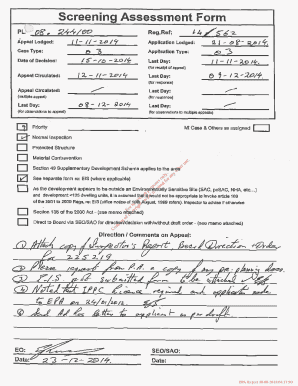 Screening Assessment Form
PL 08. 244100 Reg.Ref: 14/562
Appeal Lodged: 11-11-2014 Application Lodged: 21-08-2014
Case Type: 03 Application Type: 03
Date of Decision: 15-10-2014 Last Day: 11-11-2014
(for receipt of appeal)
Appeal Circulated: 12-11-2014 Last Day: 09-12-2014
(for response)
Appeal Circulated: Last Day:
(multiple appeals) (for response)
Last Day: 08-12-2014 Last Day:
(for observations to appeal) (for observations to multiple appeals)
Priority MI Case & Others as assigned
Normal Inspection
Protected Structure
Material Contravention
Section 49 Supplementary Development Scheme applies to the area
See separate form as EIS (where applicable)
As the development appears to be outside an Environmentally Sensitive Site (SAC, pSAC, NHA, etc...)
and development <135 dwelling units, it is assumed that it would not be appropriate to invoke article 109
of the 2001 to 2009 Regs, re: EIS (office notes of 10th August 1989 refers). Inspector to advise if otherwise
Section 135 of the 2000 Act - (see memo attached)
Direct to Board via SEO/SAO for direction/determination without draft order - (see memo attached)
Direction / Comments on Appeal:
1) Attach copy of Inspector's Report, Board Direction & Order
for 225219
2) Please request from P.A. a copy of any pre-planning docs.
3) E.I.S. was submitted form to be attached
4) Noted that IPPC licence required and application made
to EPA on 24/01/2012
Send letter to applicant as per draft
EO: SEO/SAO:
Date: 23-12-2014. Date: